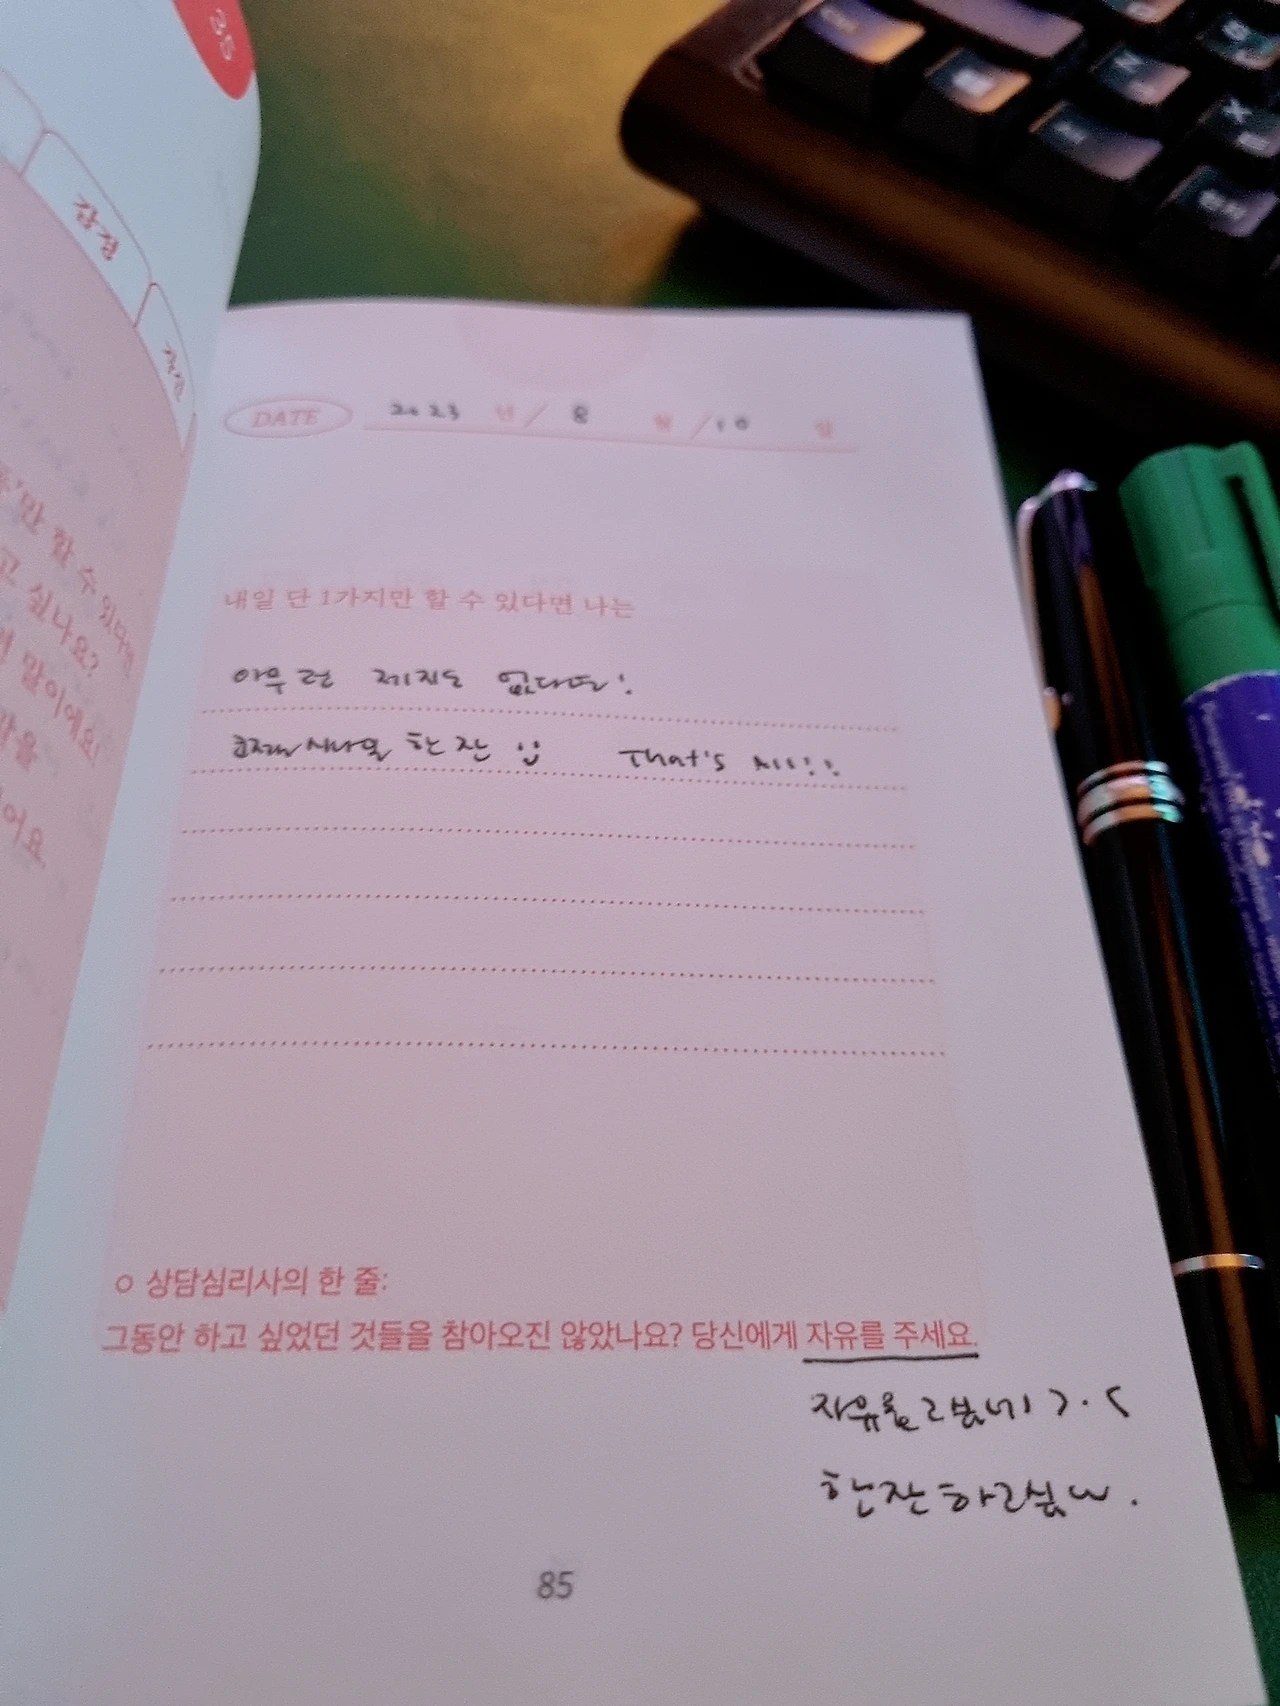 35
감정
만 할 수 있다면
고 싶나요?
말이에요!
어요
DATE 2023 년 / 8 월 / 10 일
내일 단 1가지만 할 수 있다면 나는
아무런 제지도 없다면!
한 잔 That's all!!
상담심리사의 한 줄:
그동안 하고 싶었던 것들을 참아오진 않았나요? 당신에게 자유를 주세요.
자유롭고 싶네
한잔 하고 싶
85